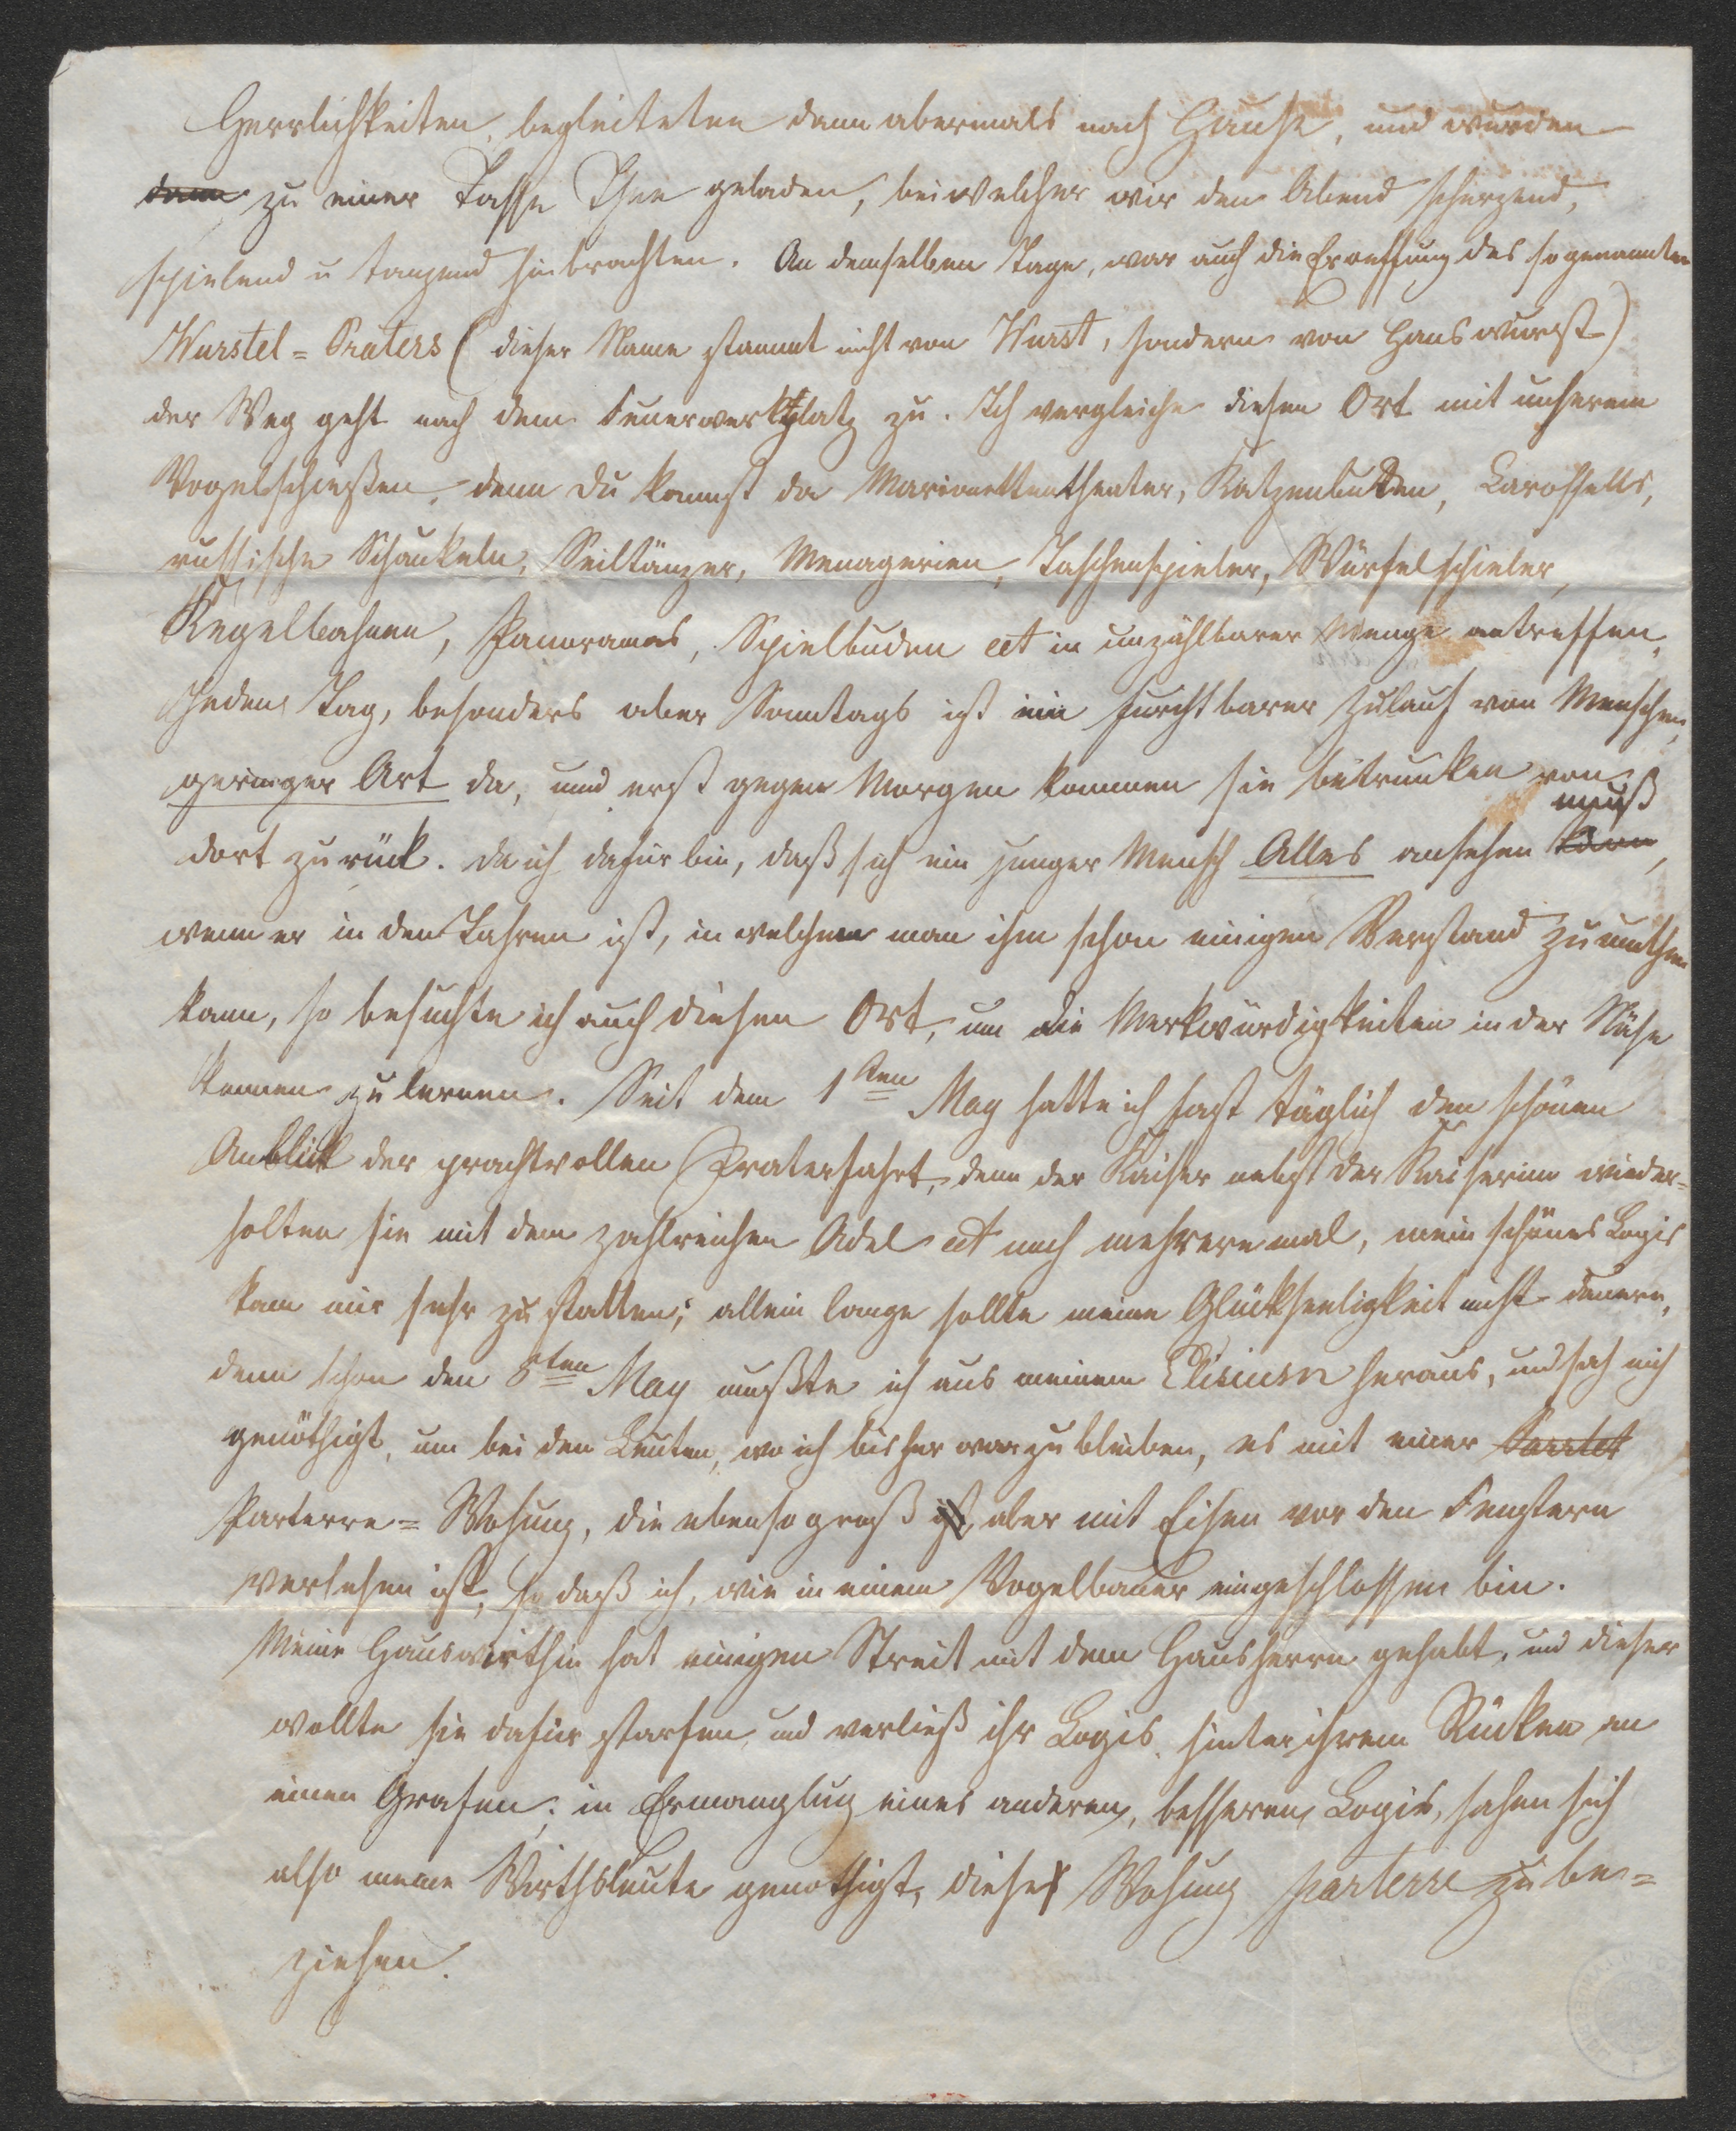 Herrlichkeiten, begleiteten dann abermals nach Hause, und wurden
dann zu einer Tasse Thee geladen, bei welcher wir den Abend scherzend,
spielend u tanzend hinbrachten. An demselben Tage, war auch die Eroeffung des sogenannten
Wurstel=Praters (dieser Name stammt nicht von Wurst, sondern von Hanswurst)
der Weg geht nach dem Feuerwerksplatz zu. Ich vergleiche diesen Ort mit unserem
Vogelschießen, denn du kannst da Marionettentheater, Katzenbuden, Carossells,
russische Schaukeln, Seiltänzer, Menagerien, Taschenspieler, Würfelschieler,
Kegelbahnen, Panoramas, Spielbuden ect in unzählbarer Menge antreffen.
Jeden Tag, besonders aber Sonntags ist ein furchtbarer Zulauf von Menschen,
geringer Art da, und erst gegen Morgen kommen sie betrunken von
dort zurück. Da ich dafür bin, daß sich ein junger Mensch Alles ansehen kann muß,
wenn er in den Jahren ist, in welchem man ihm schon einigen Verstand zumuthen
kann, so besuchte ich auch diesen Ort, um die Merkwürdigkeiten in der Nähe
kennen zu lernen. Seit dem 1ten May hatte ich fast täglich den schönen
Anblick der prachtvollen Praterfahrt, denn der Kaiser nebst der Kaiserinn wieder=
holten sie mit dem zahlreichen Adel ect noch mehreremal, mein schönes Logis
kam mir sehr zu statten; allein lange sollte meine Glückseeligkeit nicht dauern,
denn schon den 8ten May mußte ich aus meinem Elisium heraus, und sah mich
genöthigt, um bei den Leuten, wo ich bisher war zu bleiben, es mit einer
Parterre=Wohung, die ebenso groß ist, aber mit Eisen vor den Fenstern
versehen ist, so daß ich, wie in einem Vogelbauer eingeschlossen bin.
Meine Hauswirthin hat einigen Streit mit dem Hausherrn gehabt, und dieser
wollte sie dafür strafen, und verließ ihr Logis hinter ihrem Rücken an
einen Grafen; in Ermanglug eines anderen, besseren Logis, sahen sich
also meine Wirthsleute genöthigt, diese Wohung parterre zu be=
ziehen.